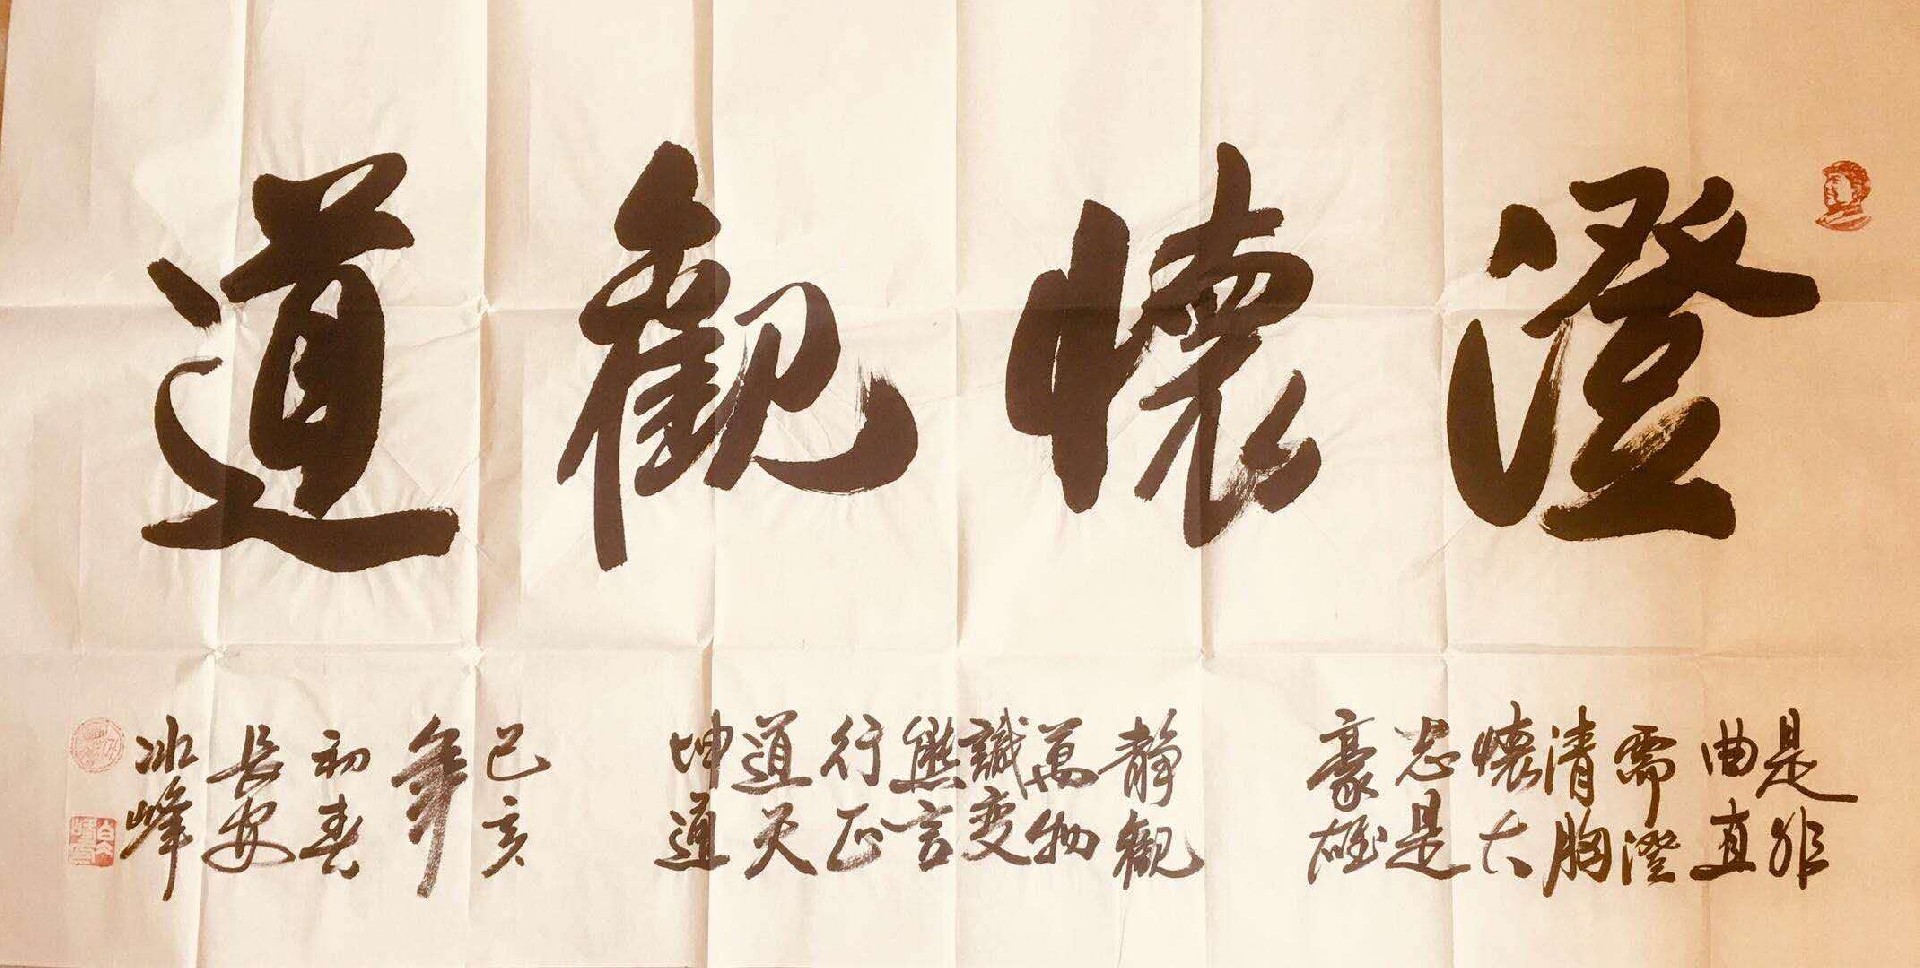 澄懷觀道
是非
曲直
需澄
清胸
懷大
志是
豪雄
静觀
萬物
識變
態言
行正
道天
坤通
己亥
年
初春
長安
冰峰